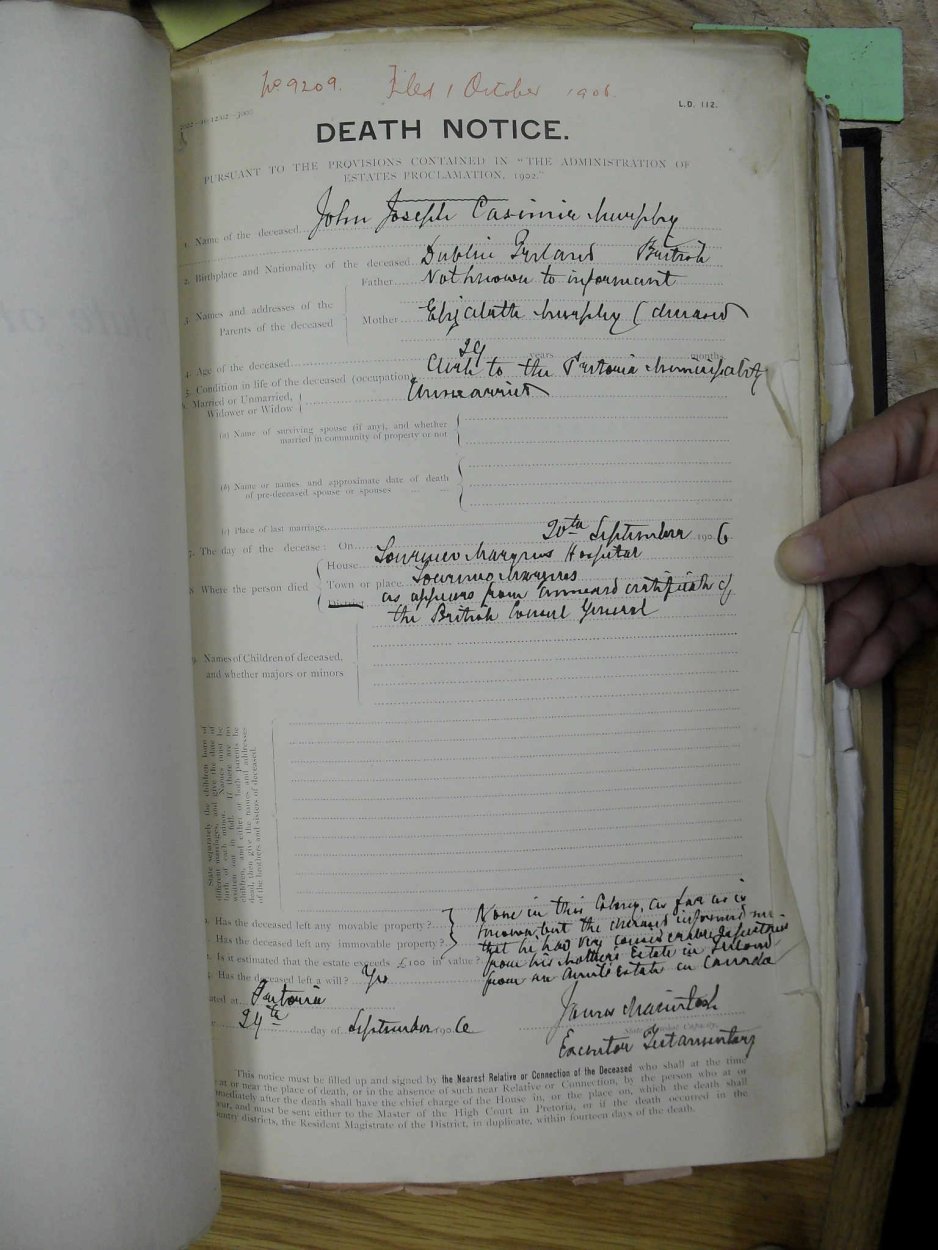 No 9209. Filed 1 October 1906.
L.D. 112.
DEATH NOTICE.
PURSUANT TO THE PROVISIONS CONTAINED IN "THE ADMINISTRATION OF
ESTATES PROCLAMATION, 1902."
1. Name of the deceased John Joseph Casimir Murphy
2. Birthplace and Nationality of the deceased Dublin Ireland British
3. Names and addresses of the Parents of the deceased
Father Not known to informant
Mother Elizabeth Murphy (deceased)
4. Age of the deceased 29 years months
5. Condition in life of the deceased (occupation) Clerk to the Pretoria Municipality
6. Married or Unmarried, Widower or Widow Unmarried
(a) Name of surviving spouse (if any), and whether
married in community of property or not
(b) Name or names, and approximate date of death
of pre-deceased spouse or spouses
(c) Place of last marriage
7. The day of the decease: On 20th September 1906.
8 Where the person died
House Lourenco Marques Hospital
Town or place Lourenco Marques
District as appears from annexed certificate of
the British Consul General
9. Names of Children of deceased,
and whether majors or minors
State separately the children born of
different marriages, and give the date of
birth of each minor. Names must be
written out in full. If there are no
children, and either or both parents be
dead, then give the names and addresses
of the brothers and sisters of deceased.
Has the deceased left any movable property?
Has the deceased left any immovable property?
Is it estimated that the estate exceeds £100 in value?
None in this Colony, as far as is
known, but the deceased informed me
that he had very considerable
from his Mothers Estate in Ireland
from an Aunts Estate in Canada
Has the deceased left a will? Yes
Dated at Pretoria
24th day of September 1906
James Macintosh
State Capacity.
Executor Testamentary
This notice must be filled up and signed by the Nearest Relative or Connection of the Deceased who shall at the time
at or near the place of death, or in the absence of such near Relative or Connection, by the person who at or
immediately after the death shall have the chief charge of the House in, or the place on, which the death shall
occur, and must be sent either to the Master of the High Court in Pretoria, or if the death occurred in the
country districts, the Resident Magistrate of the District, in duplicate, within fourteen days of the death.